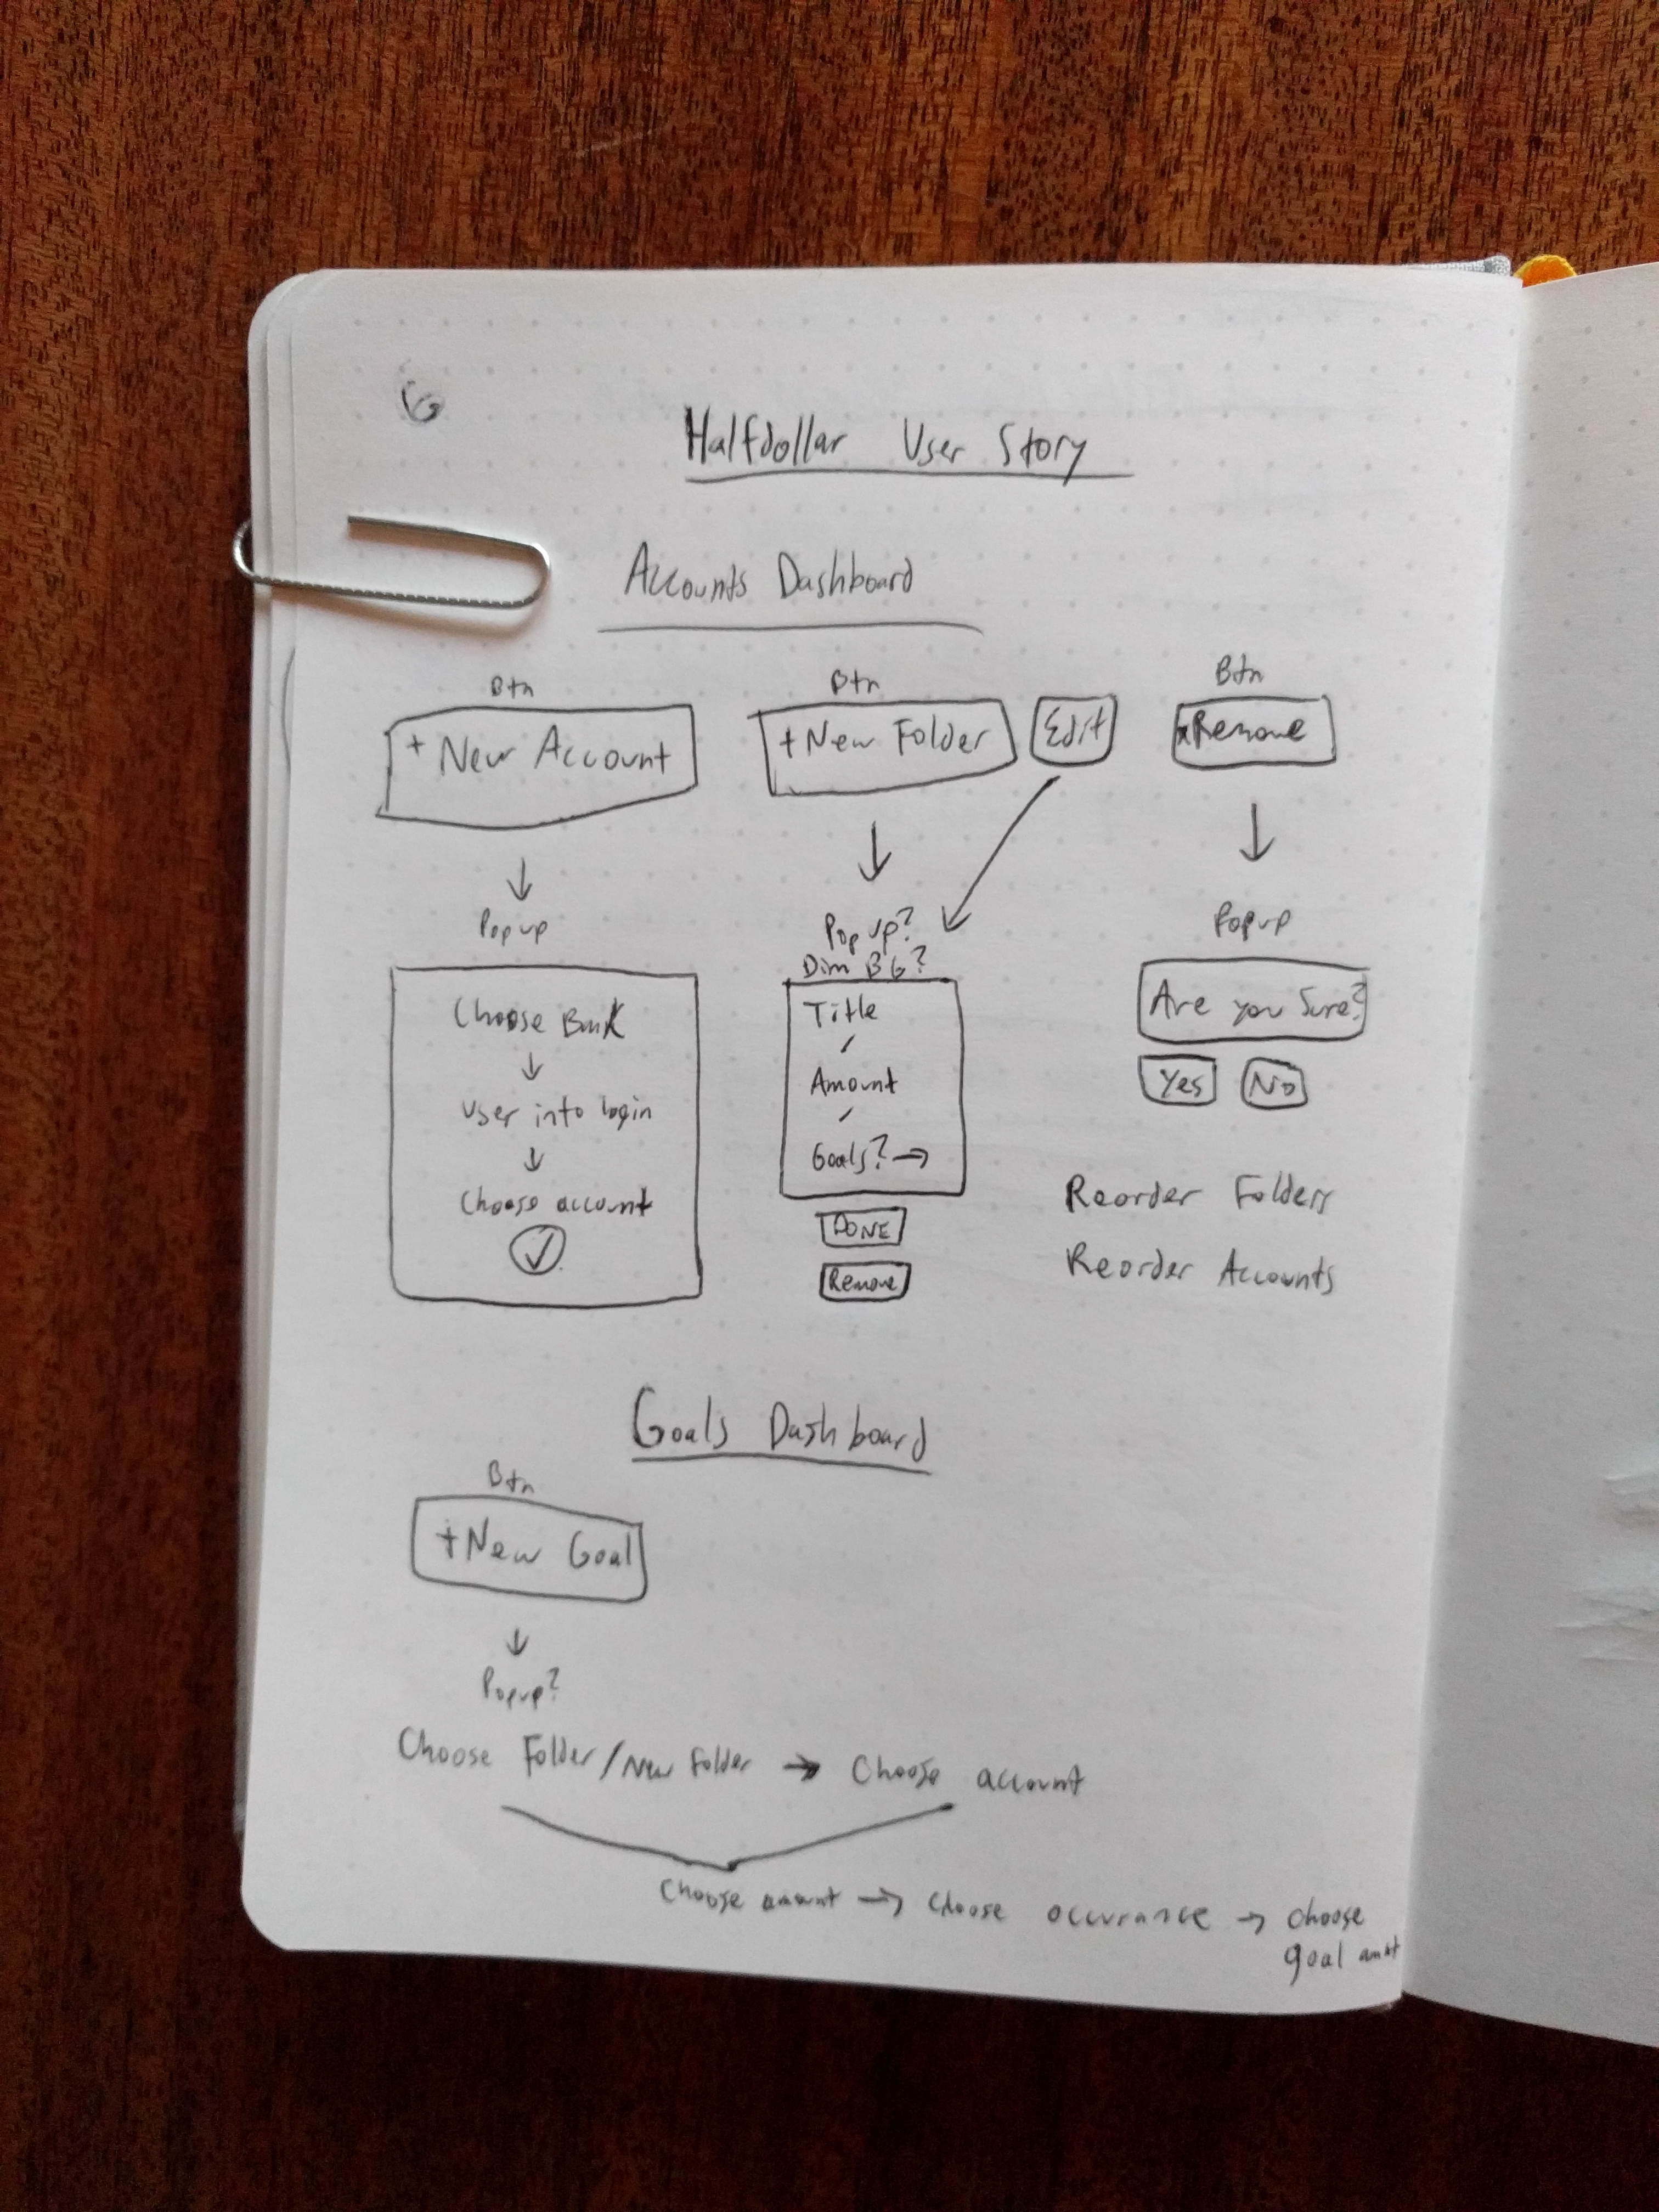 6
Halfdollar User Story
Accounts Dashboard
Btn
+ New Account
↓
Popup
Choose Bank
↓
User into login
↓
Choose account
✓
Btn
+New Folder
Edit
↓
Popup?
Dim BG?
Title
Amount
Goals? →
DONE
Remove
Btn
xRemove
↓
Popup
Are you Sure?
Yes No
Reorder Folders
Reorder Accounts
Goals Dashboard
Btn
+New Goal
↓
Popup?
Choose Folder/New Folder → Choose account
Choose amount → Choose occurance → choose
goal amt